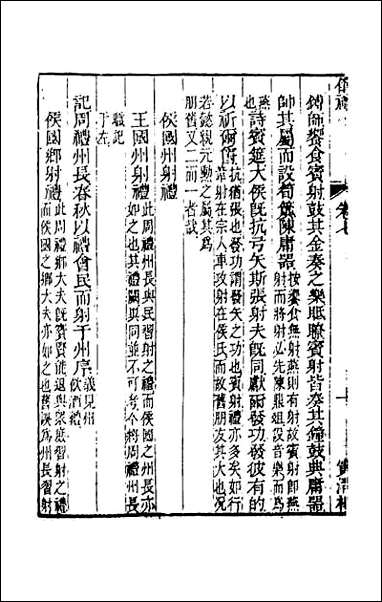 鎛師饗食賓射鼓其金奏之樂眡瞭賓射皆奏其鐘鼓典庸器
帥其屬而設筍虡陳庸器
按饗食無射燕則有射故賓射卽燕
射而將射必先陳鼎俎設音樂而爲
燕
詩賓筵大侯旣抗弓矢斯張射夫旣同獻爾發功發彼有的
以祈爾爵
抗猶張也發功謂發矢之功也賓射禮亦多矣如行
葦射在宗人車攻射在侯氏而故舊朋友其大也況
若懿親元勳之屬其爲
朋舊又二而一者哉
侯國州射禮
王國州射禮
此周禮州長與民習射之禮而侯國之州長亦
如之也其禮闕與同並不可考今將周禮州長
職記
于左
記周禮州長春秋以禮會民而射于州序
義見州
飲酒禮
侯國鄉射禮
此周禮鄉大夫旣賓賢能退與衆庶習射之禮
而侯國之鄉大夫亦如之也舊誤爲州長習射